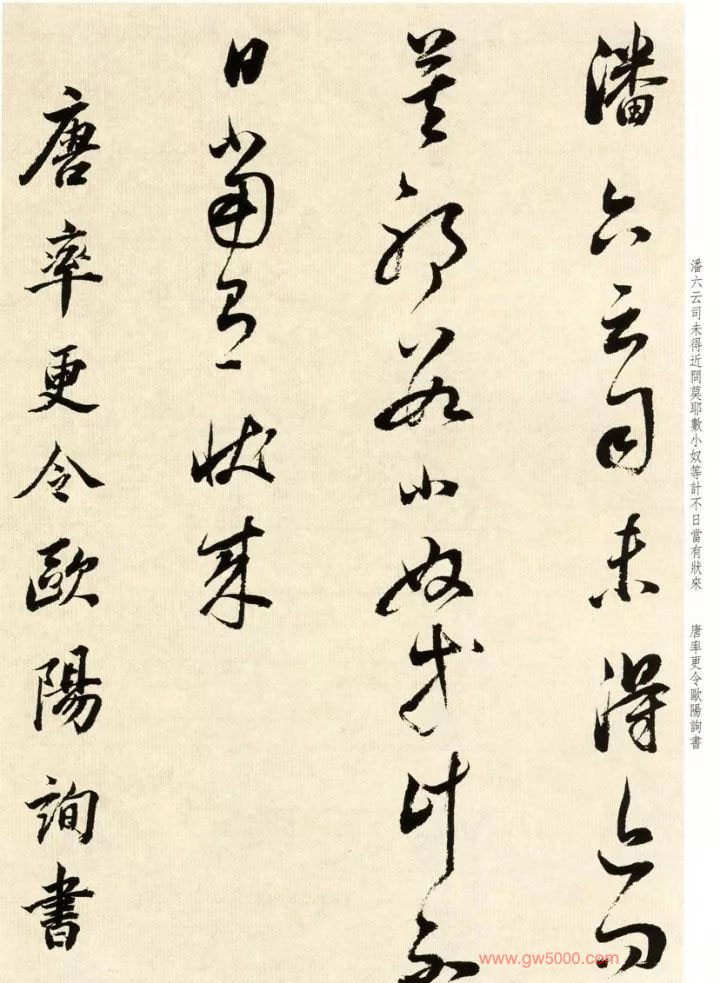 潘六云司未得近問
莫耶數小奴等計不
日當有狀來
唐率更令歐陽詢書
潘六云司未得近問莫耶數小奴等計不日當有狀來 唐率更令歐陽詢書
www.gw5000.com